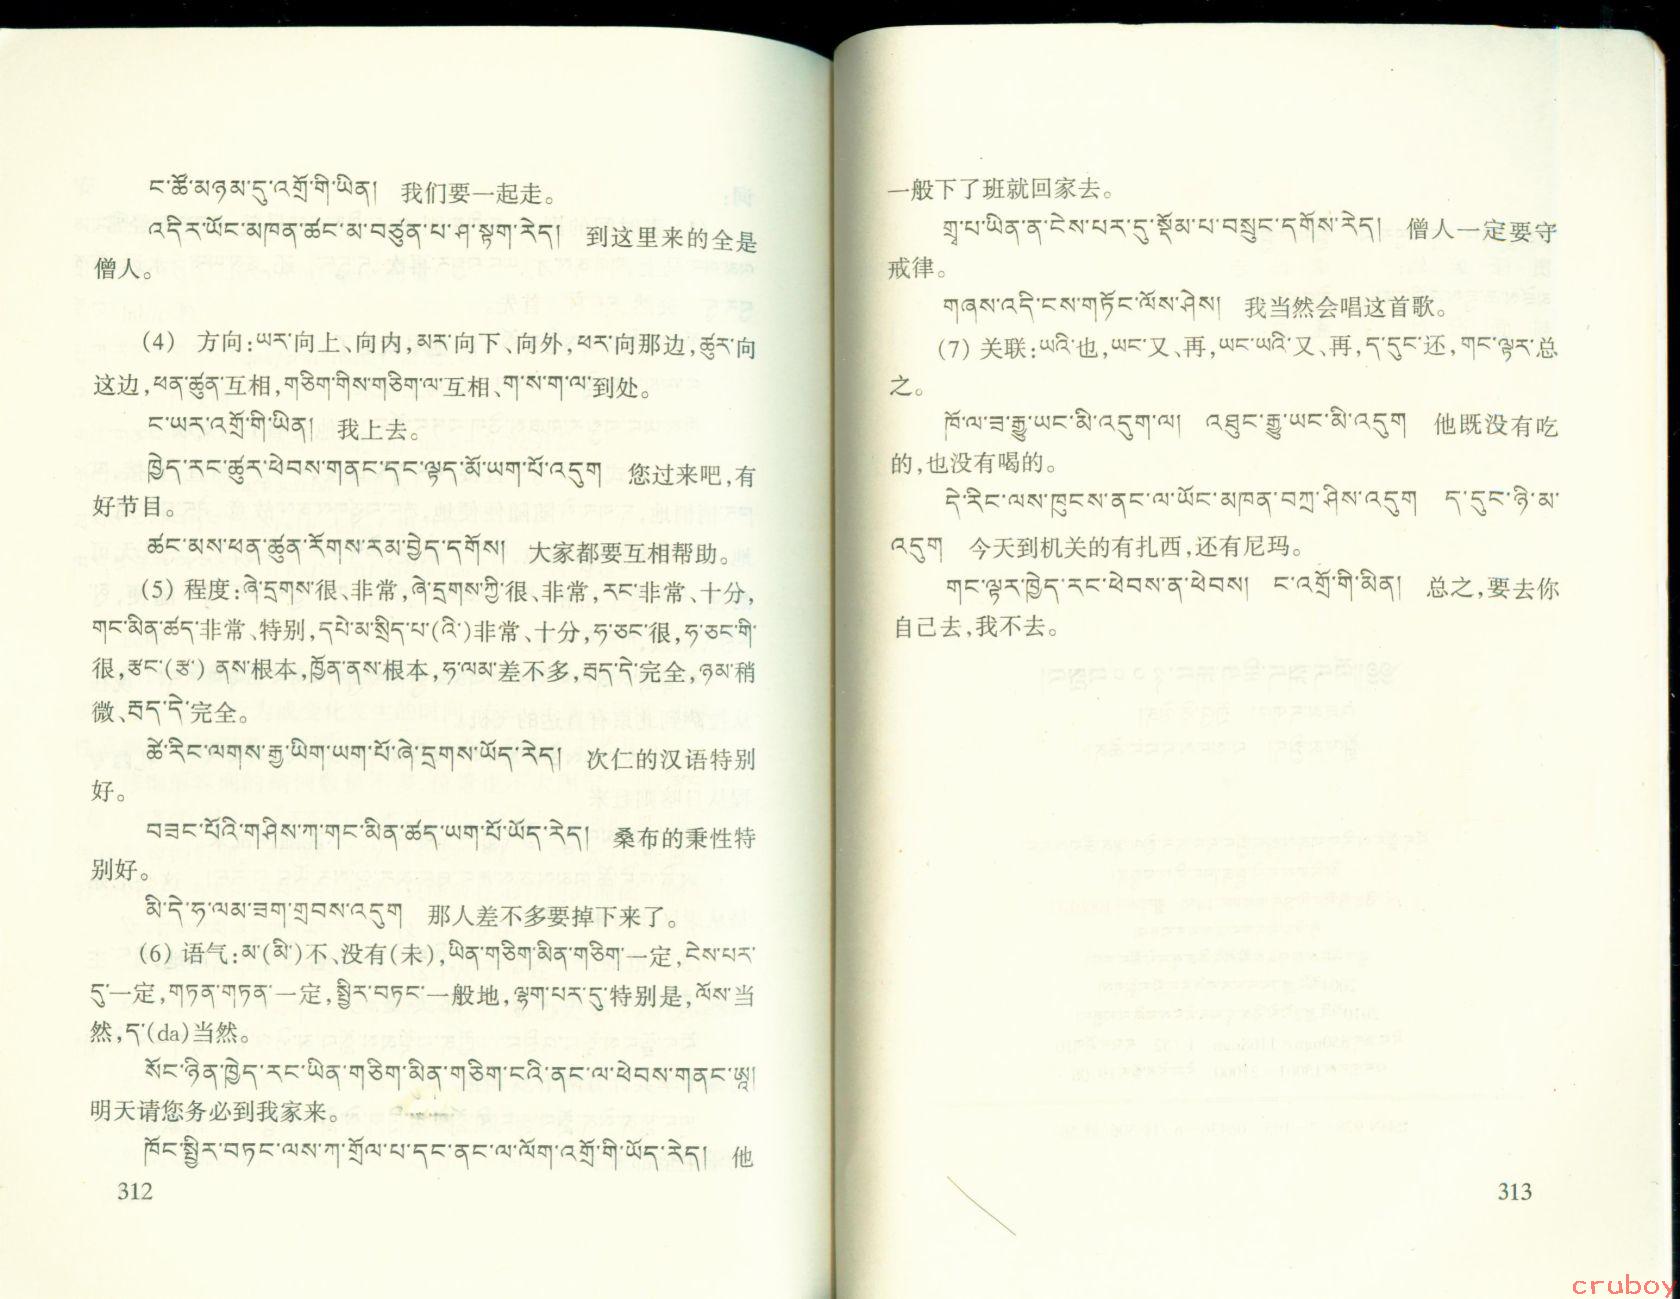 ང་ཚོ་མཉམ་དུ་འགྲོ་གི་ཡིན། 我们要一起走。
འདིར་ཡོང་མཁན་ཚང་མ་བཙུན་པ་ཤ་སྟག་རེད། 到这里来的全是
僧人。
(4) 方向:ཡར་向上、向内,མར་向下、向外,ཕར་向那边,ཚུར་向
这边,ཕན་ཚུན་互相,གཅིག་གིས་གཅིག་ལ་互相、ག་ས་ག་ལ་到处。
ང་ཡར་འགྲོ་གི་ཡིན། 我上去。
ཁྱེད་རང་ཚུར་ཕེབས་གནང་དང་ལྟད་མོ་ཡག་པོ་འདུག 您过来吧,有
好节目。
ཚང་མས་ཕན་ཚུན་རོགས་རམ་བྱེད་དགོས། 大家都要互相帮助。
(5) 程度:ཞེ་དྲགས་很、非常,ཞེ་དྲགས་ཀྱི་很、非常,རང་非常、十分,
གང་མིན་ཚད་非常、特别,དཔེ་མ་སྲིད་པ་(འི་)非常、十分,ཧ་ཅང་很,ཧ་ཅང་གི་
很,རྩང་(རྩ་) ནས་根本,ཁྱོན་ནས་根本,ཧ་ལམ་差不多,བད་དེ་完全,ཉམ་稍
微、བད་དེ་完全。
ཚེ་རིང་ལགས་རྒྱ་ཡིག་ཡག་པོ་ཞེ་དྲགས་ཡོད་རེད། 次仁的汉语特别
好。
བཟང་པོའི་གཤིས་ཀ་གང་མིན་ཚད་ཡག་པོ་ཡོད་རེད། 桑布的秉性特
别好。
མི་དེ་ཧ་ལམ་ཟག་གྲབས་འདུག 那人差不多要掉下来了。
(6) 语气:མ་(མི་)不、没有(未),ཡིན་གཅིག་མིན་གཅིག་一定,ངེས་པར་
དུ་一定,གཏན་གཏན་一定,སྤྱིར་བཏང་一般地,ལྷག་པར་དུ་特别是,ལོས་当
然,ད་(da)当然。
སོང་ཉིན་ཁྱེད་རང་ཡིན་གཅིག་མིན་གཅིག་ངའི་ནང་ལ་ཕེབས་གནང་ཨཱ།
明天请您务必到我家来。
ཁོང་སྤྱིར་བཏང་ལས་ཀ་གྲོལ་པ་དང་ནང་ལ་ལོག་འགྲོ་གི་ཡོད་རེད། 他
312
一般下了班就回家去。
གྲྭ་པ་ཡིན་ན་ངེས་པར་དུ་སྡོམ་པ་བསྲུང་དགོས་རེད། 僧人一定要守
戒律。
གཞས་འདི་ངས་གཏོང་ལོས་ཤེས། 我当然会唱这首歌。
(7) 关联:ཡའི་也,ཡང་又、再,ཡང་ཡའི་又、再,ད་དུང་还,གང་ལྟར་总
之。
ཁོ་ལ་ཟ་རྒྱུ་ཡང་མི་འདུག་ལ། འཐུང་རྒྱུ་ཡང་མི་འདུག 他既没有吃
的,也没有喝的。
དེ་རིང་ལས་ཁུངས་ནང་ལ་ཡོང་མཁན་བཀྲ་ཤིས་འདུག ད་དུང་ཉི་མ་
འདུག 今天到机关的有扎西,还有尼玛。
གང་ལྟར་ཁྱེད་རང་ཕེབས་ན་ཕེབས། ང་འགྲོ་གི་མིན། 总之,要去你
自己去,我不去。
313
cruboy